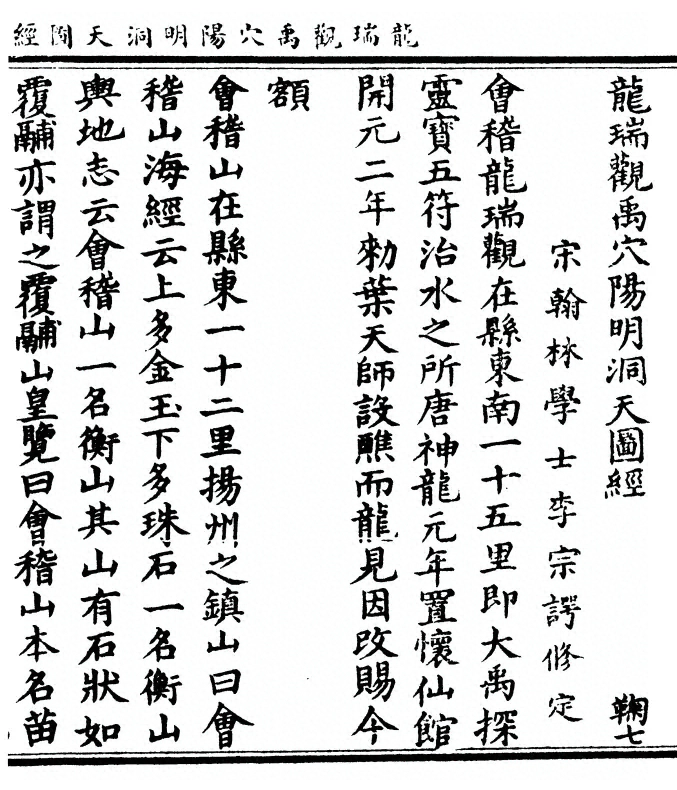 龍瑞觀禹穴陽明洞天圖經
龍瑞觀禹穴陽明洞天圖經 鞠七
宋翰林學士李宗諤修定
會稽龍瑞觀在縣東南一十五里即大禹探
靈寶五符治水之所唐神龍元年置懷仙館
開元二年勑葉天師設醮而龍見因改賜今
額
會稽山在縣東一十二里揚州之鎮山曰會
稽山海經云上多金玉下多珠石一名衡山
輿地志云會稽山一名衡山其山有石狀如
覆鬴亦謂之覆鬴山皇覽曰會稽山本名苗